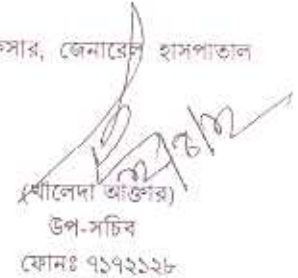 সার, জেনারেল হাসপাতাল
(খালেদা আক্তার)
উপ-সচিব
ফোনঃ ৭১৭২১২৮